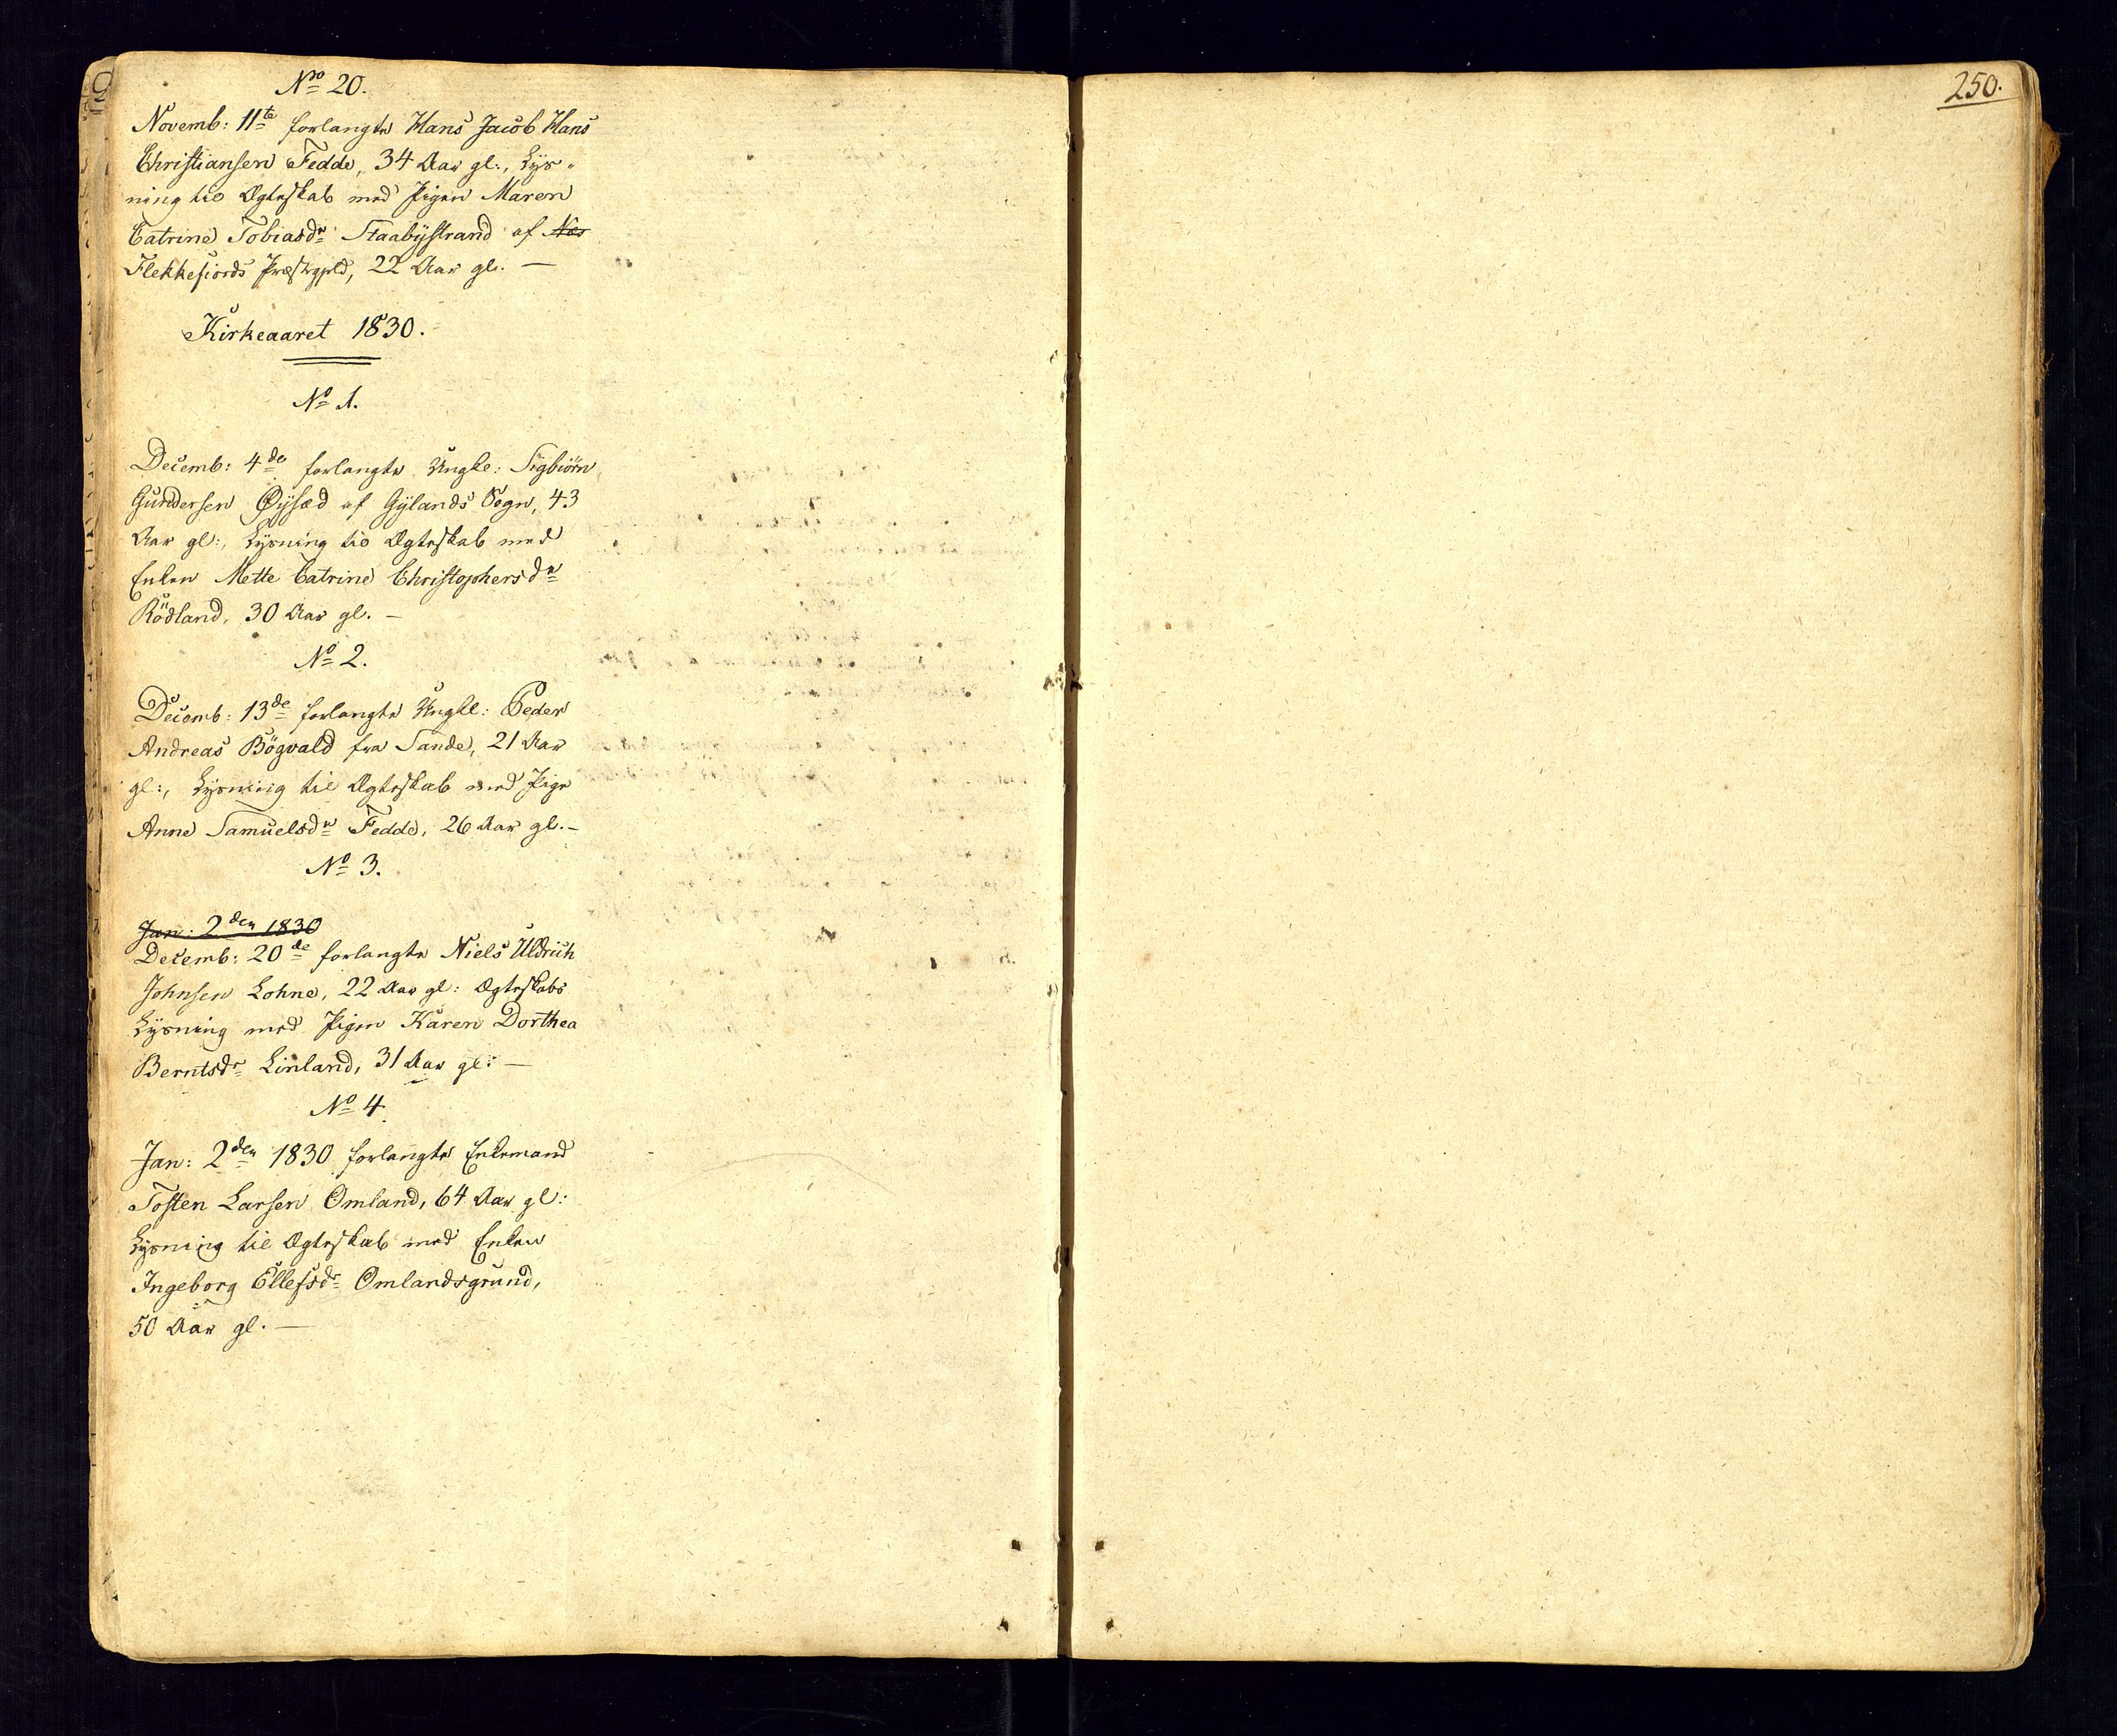 No 20.
Novemb: 11te forlangte Hans Jacob Hans
Christiansen Fedde, 34 Aar gl:, Lys-
ning til Ægteskab med Pigen Maren
Catrine Tobiasdr Staabÿstrand af Næs
Flekkefiords Præstegjeld, 22 Aar gl. —
Kirkeaaret 1830.
No 1.
Decemb: 4de forlangte Ungk: Sigbiörn
Gundersen Öÿsæd af Gÿlands Sogn, 43
Aar gl:, Lÿsning til Ægteskab med
Enken Mette Catrine Christophersdr
Rödland, 30 Aar gl. —
No 2.
Decemb: 13de forlangte Ungk: Peder
Andreas Bögvald fra Sande, 21 Aar
gl:, Lÿsning til Ægteskab med Pige
Anne Samuelsdr Fedde, 26 Aar gl. —
No 3.
Jan: 2den 1830
Decemb: 20de forlangte Niels Uldrich
Johnsen Lohne, 22 Aar gl: Ægteskabs
Lÿsning med Pigen Karen Dorthea
Berntsdr Linland, 31 Aar gl: —
No 4.
Jan: 2den 1830 forlangte Enkemand
Tosten Larsen Omland, 64 Aar gl:
Lÿsning til Ægteskab med Enken
Ingeborg Ellefsdr Omlandsgrund,
50 Aar gl. —
250.